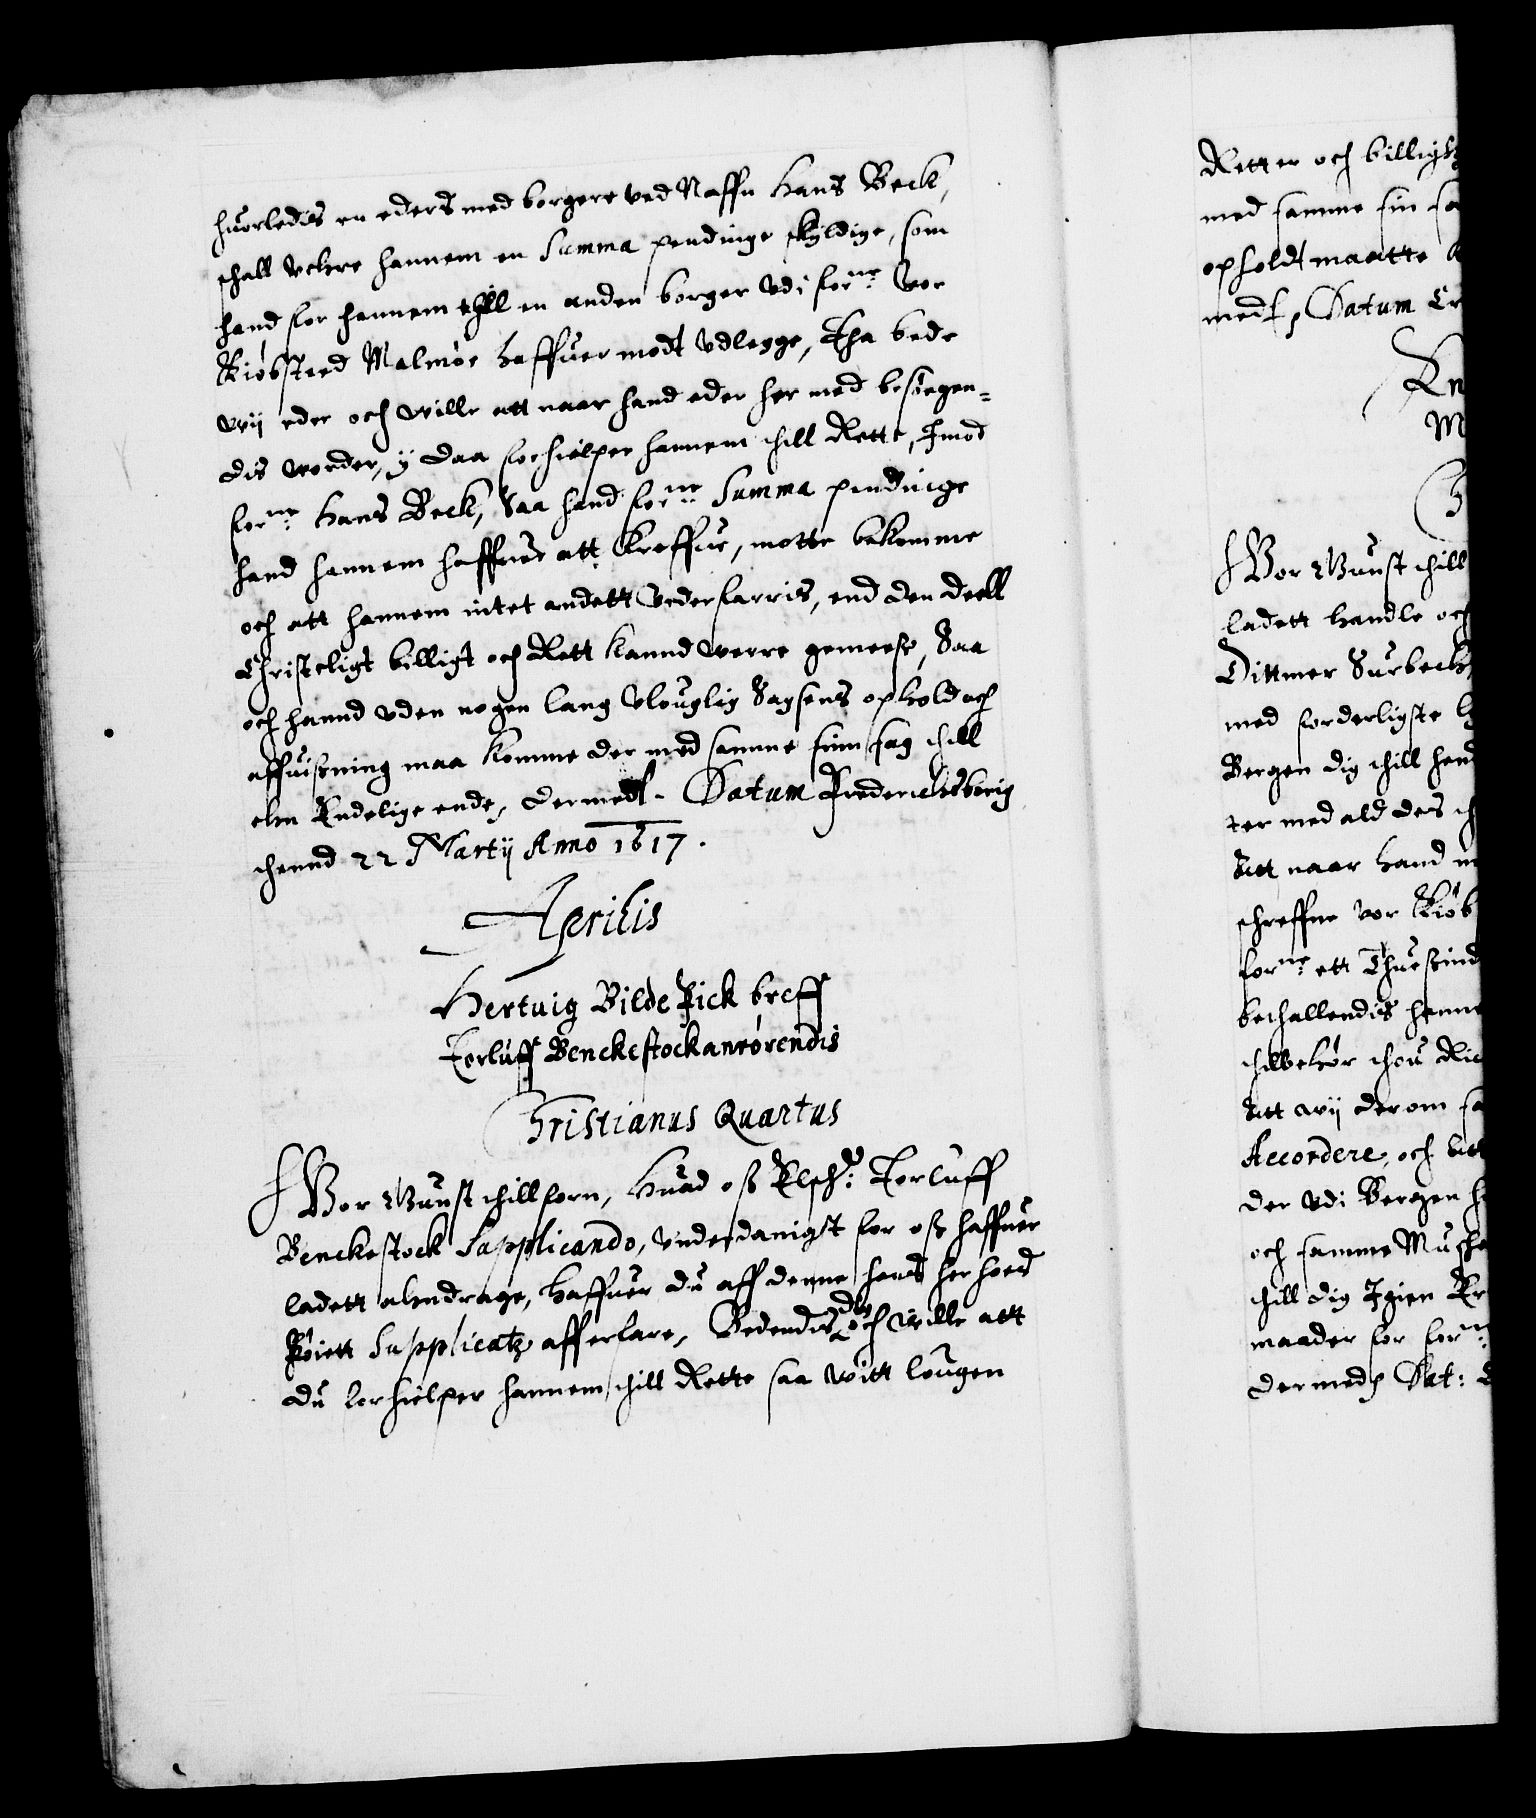 huorledis en eders med borgere ved Naffn Hans Beck,
schall vehre hannem en Summa pendinge skyldige, som
hand for hannem thill en anden borger vdj forne: vor
Kiøbsteed Malmøe haffuer modt vdlegge, Tha bede
wij eder och wille att naar hand eder her med besøegen-
dis worder, y daa forhielper hannem thill Rette, Imod
forne: Hans Beck, Saa hand forne: Summa pendinge
hand hannem haffuer att kreffue, motte bekomme
och att hannem intet andett vederfarris, end den deell
Christeligt billigt och Rett kannd werre gemeess, Saa
och hannd vden nogen lang vlouglig Sagsens ophold och
affuisning maa komme der med samme sinn sag thill
ehn Endelige ende, dermedt. Datum Frederichsborig
thennd 22 Martij Anno 1617.
Aprilis
Hertuig Bilde fick breff
Torluff Benckestock anrørendis
Christianus Quartus
Vor Gunst thillforn, Huad oss Elsch: Torluff
Benckestock Supplicando, vnderdanigst for oss haffuer
ladett alendrage, Haffuer du aff denne hans her hoes
føiett Supplicatz afferfare, Bedendis der och wille att
du forhielper hannem thill Rette saa witt lougen
Retter och billigh
med samme sin sa
opholdt maatte
medt, Datum Cr
Kn
M
Vor Gunst thill
ladett handle och
Dittmer Surbeck,
med forderligste
Bergen dig thill hend
ter med ald des
Att naar hand
schreffne vor Kiøb
forne: ett Thuesind
bethallendis hanne
thilbehør thou Ri
Att wij derom sa
Accordere, och
der vdi Bergen
och samme Muske
thill dig Igien
maader for forne:
dermed, Dat: